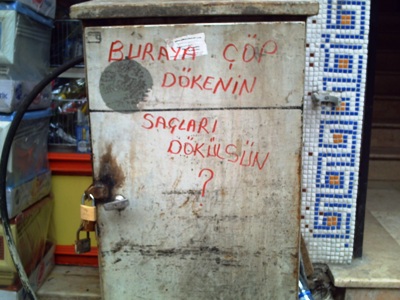 BURAYA ÇÖP
DÖKENİN
SAÇLARI
DÖKÜLSÜN
?